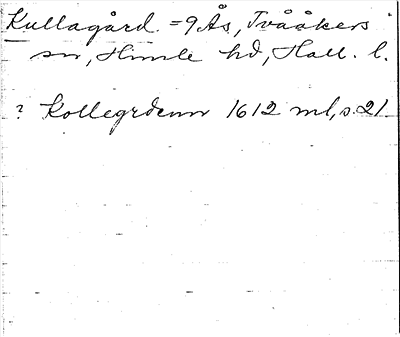 Kullagård = 9 Ås, Tvååkers
sn, Himle hd, Hall. l.
? Kollegrdenn 1612 ml, s. 21